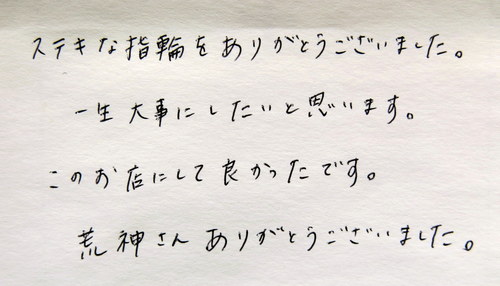 ステキな指輪をありがとうございました。
一生大事にしたいと思います。
このお店にして良かったです。
荒神さんありがとうございました。